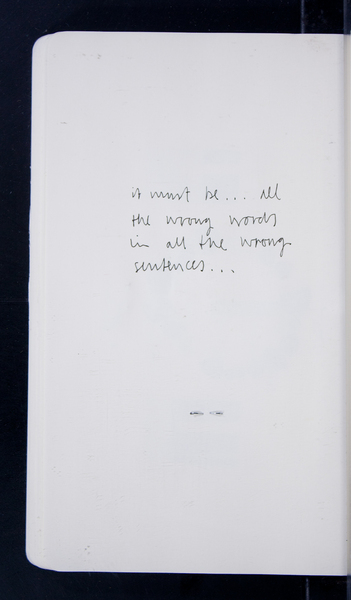 it must be... all
the wrong words
in all the wrong
sentences...